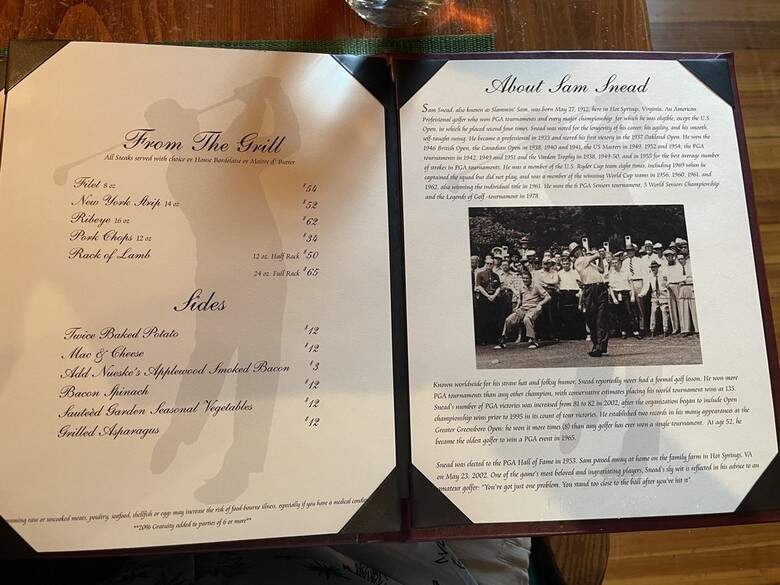 From The Grill
All Steaks served with choice or House Bordelaise or Maitre d' Butter
Filet 8 oz $54
New York Strip 14 oz $52
Ribeye 16 oz $62
Pork Chops 12 oz $34
Rack of Lamb 12 oz. Half Rack $50
24 oz. Full Rack $65
Sides
Twice Baked Potato $12
Mac & Cheese $12
Add Nueske's Applewood Smoked Bacon $3
Bacon Spinach $12
Sauteèd Garden Seasonal Vegetables $12
Grilled Asparagus $12
raw or uncooked meats, poultry, seafood, shellfish or eggs may increase the risk of food-bourne illness, especially if you have a medical
**20% Gratuity added to parties of 6 or more**
About Sam Snead
Sam Snead, also known as Slammin' Sam, was born May 27, 1912, here in Hot Springs, Virginia. An American
Professional golfer who won PGA tournaments and every major championship for which he was eligible, except the U.S.
Open, in which he placed second four times. Snead was noted for the longevity of his career, his agility, and his smooth,
self-taught swing. He became a professional in 1933 and scored his first victory in the 1937 Oakland Open. He won the
1946 British Open, the Canadian Open in 1938, 1940 and 1941, the US Masters in 1949, 1952 and 1954, the PGA
tournaments in 1942, 1949 and 1951 and the Vardon Trophy in 1938, 1949-50, and in 1955 for the best average number
of strokes in PGA tournaments. He was a member of the U.S. Ryder Cup team eight times, including 1969 when he
captained the squad but did not play, and was a member of the winning World Cup teams in 1956, 1960, 1961, and
1962, also winning the individual title in 1961. He won the 6 PGA Seniors tournament, 5 World Seniors Championship
and the Legends of Golf -tournament in 1978.
Known worldwide for his straw hat and folksy humor, Snead reportedly never had a formal golf lesson. He won more
PGA tournaments than any other champion, with conservative estimates placing his world tournament wins at 135.
Snead's number of PGA victories was increased from 81 to 82 in 2002, after the organization began to include Open
championship wins prior to 1995 in its count of tour victories. He established two records in his many appearances at the
Greater Greensboro Open: he won it more times (8) than any golfer has ever won a single tournament. At age 52, he
became the oldest golfer to win a PGA event in 1965.
Snead was elected to the PGA Hall of Fame in 1953. Sam passed away at home on the family farm in Hot Springs, VA
on May 23, 2002. One of the game's most beloved and ingratiating players, Snead's sly wit is reflected in his advice to an
amateur golfer: "You've got just one problem. You stand too close to the ball after you've hit it"